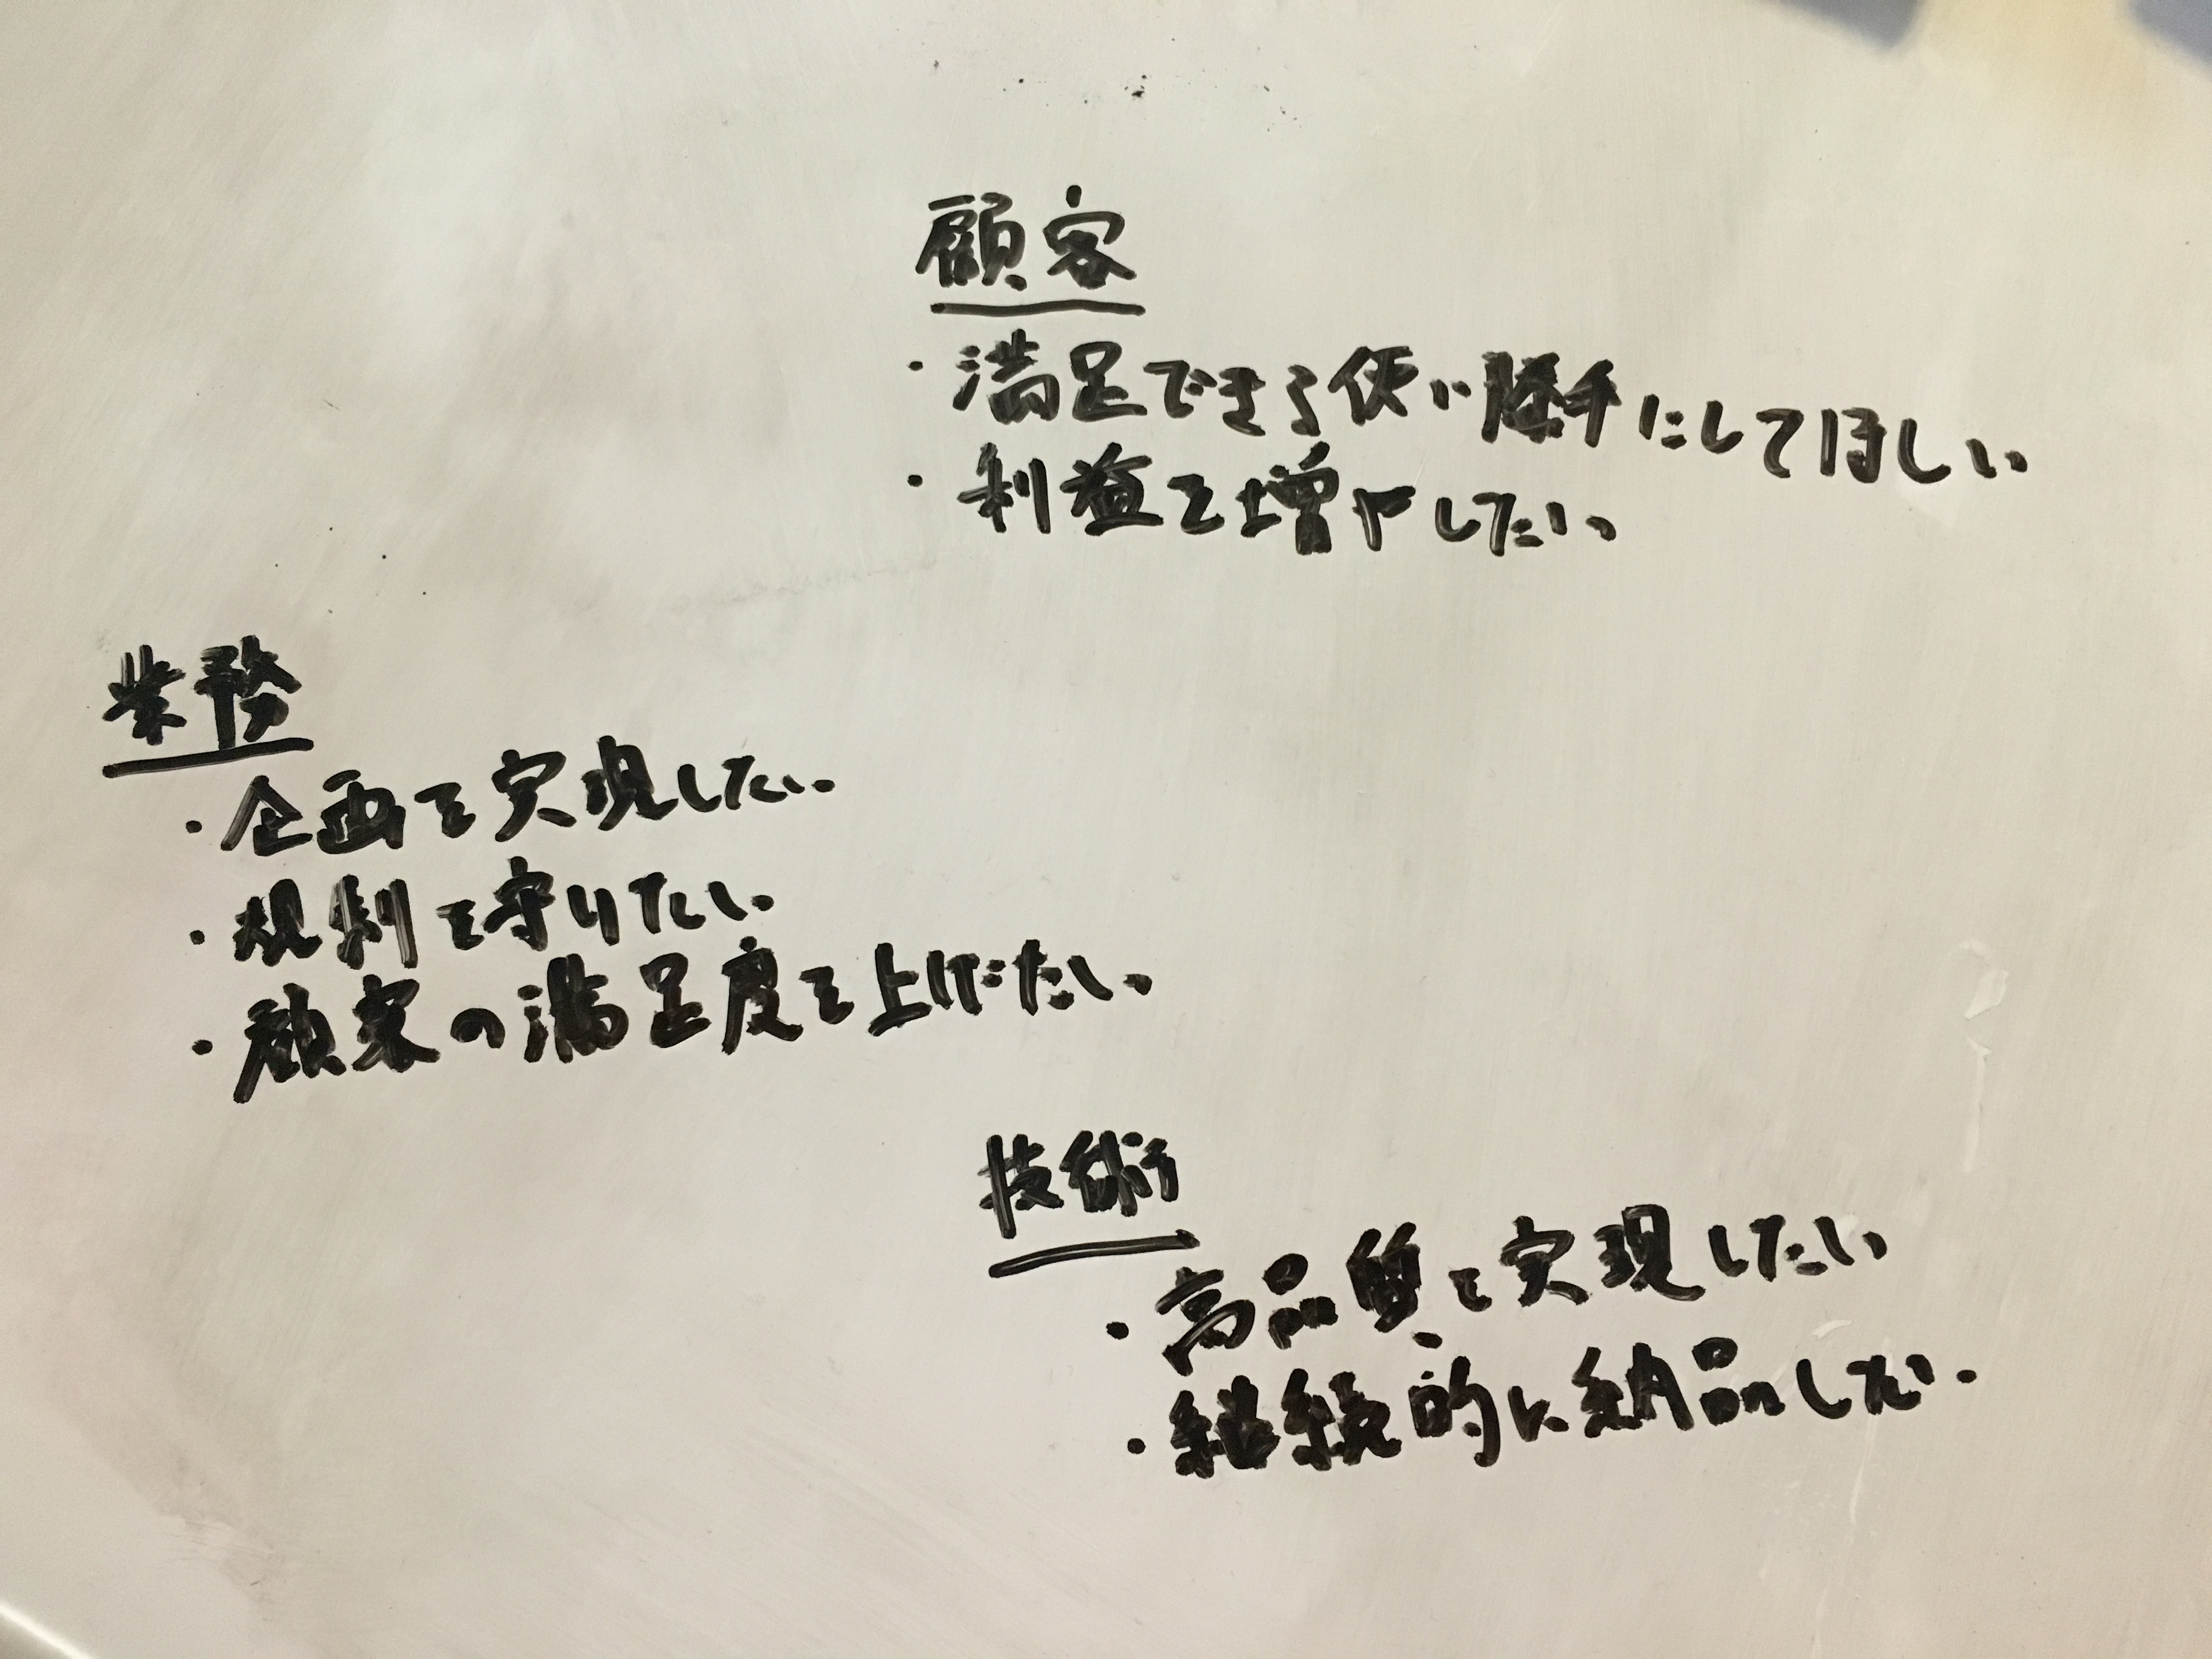 顧客
・満足できる使い勝手にしてほしい
・利益を増やしたい
業務
・企画を実現したい
・規則を守りたい
・顧客の満足度を上げたい
技術
・高品質を実現したい
・継続的に納品したい